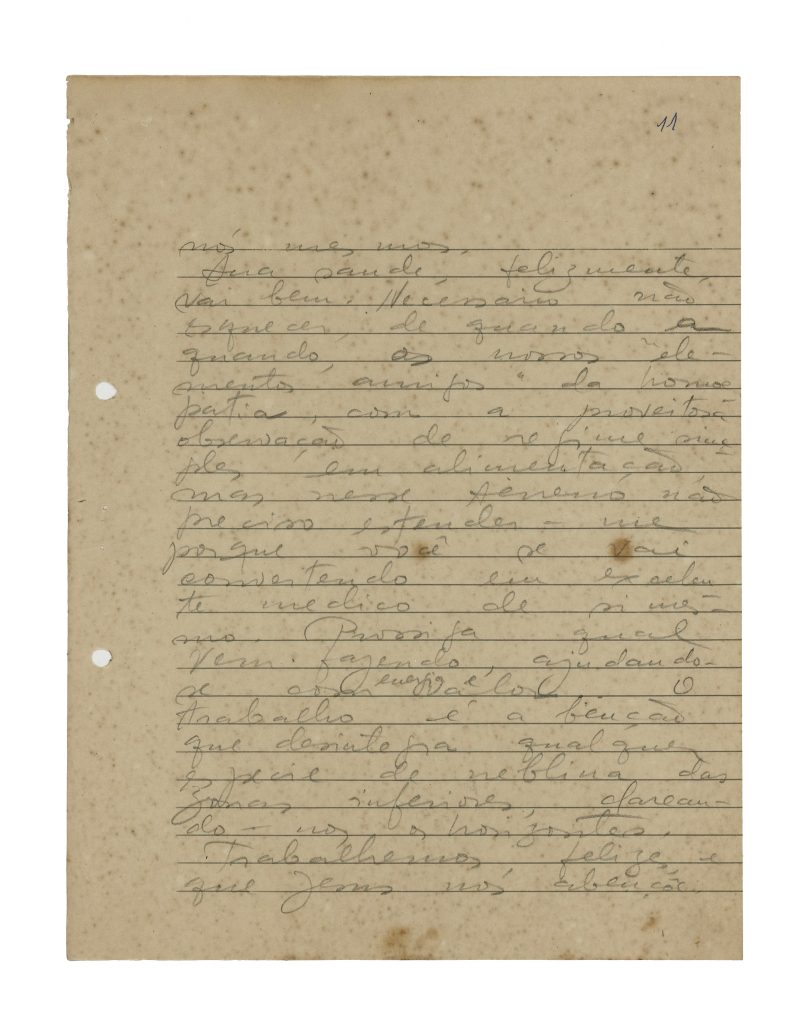 11
nós mesmos.
Sua saude, felizmente,
vai bem. Necessario não
esquecer, de quando a
quando, os nossos "ele-
mentos amigos" da homeo
patia, com a proveitosa
observação de regime sim-
ples em alimentação,
mas nesse terreno não
preciso estender-me
porque você se vai
convertendo em excelen
te medico de si mes-
mo. Prossiga qual
vem fazendo, ajudando-
se com energia e valor. O
trabalho é a benção
que desintegra qualquer
especie de neblina das
zonas inferiores, clarean-
do-nos os horizontes.
Trabalhemos felizes e
que Jesus nos abençôe.